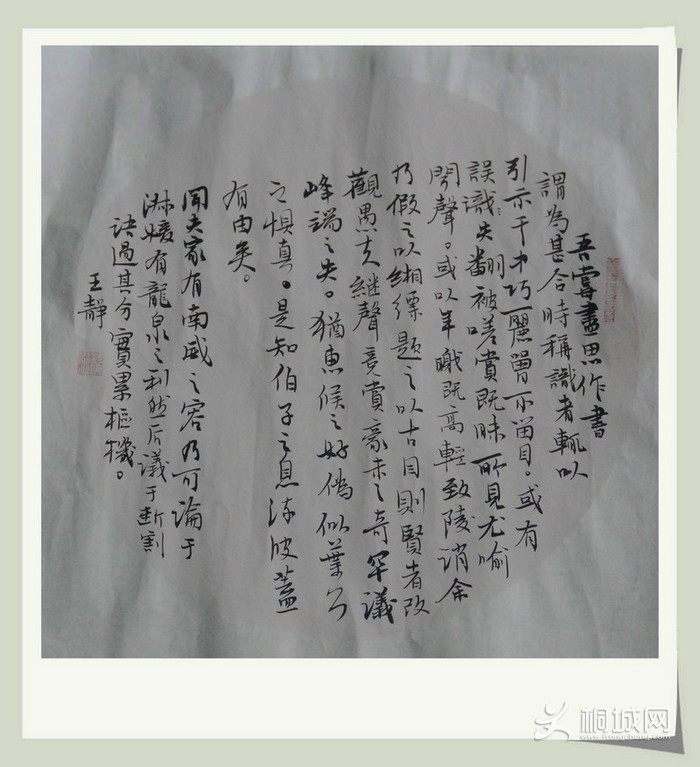 吾嘗盡思作書
謂為甚合時稱識者輒以
引示于中巧麗曾不留目。或有
誤識失翻被嗟賞既昧所見尤喻
聲。或以年職既高輕致陵誚余
乃假之以緗縹題之以古目則賢者改
觀愚夫継聲竞賞豪末之奇罕議
峰端之失。猶惠侯之好偽似葉公
之惧真。是知伯子之息流波蓋
有由矣。
聞夫家有南威之容乃可論于
淋媛有龍泉之利然后議于断割
语過其分實累樞機。
王靜
桐城网
www.itongcheng.com